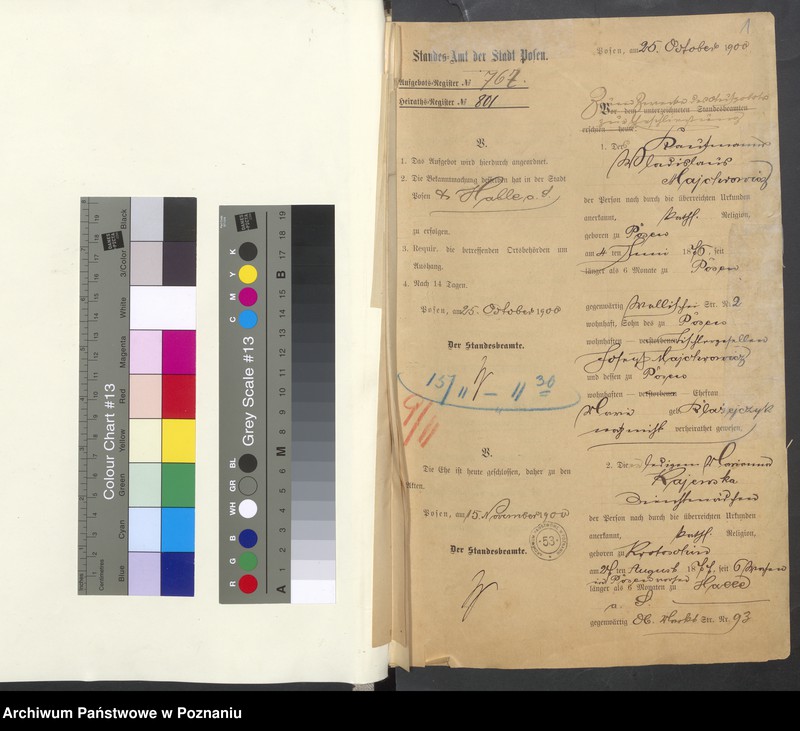 Standes-Amt der Stadt Posen.
Aufgebots-Register № 767.
Heiraths-Register № 801
V.
1. Das Aufgebot wird hierdurch angeordnet.
2. Die Bekanntmachung desselben hat in der Stadt
Posen & Halle a. S
zu erfolgen.
3. Requir. die betreffenden Ortsbehörden um
Aushang.
4. Nach 14 Tagen.
Posen, am 25. October 1900
Der Standesbeamte.
15/11 — 11 30
9/11
V.
Die Ehe ist heute geschlossen, daher zu den
Akten.
Posen, am 15. November 1900
Der Standesbeamte.
53
1
Posen, am 25. October 1900
Vor dem unterzeichneten Standesbeamten
erschien heute:
1. Der Kaufmann
Wladislaus
Majchrowicz
der Person nach durch die überreichten Urkunden
anerkannt, kath. Religion,
geboren zu Posen
am 4 ten Juni 1876, seit
länger als 6 Monate zu Posen
gegenwärtig Wallischei Str. Nr. 2
wohnhaft, Sohn des zu Posen
wohnhaften — verstorbenen Tischlergesellen
Joseph Majchrowicz
und dessen zu Posen
wohnhaften — verstorbenen — Ehefrau
Marie geb.
verheirathet gewesen.
2. Die ledige Marianna
Rajewska
Dienstmädchen
der Person nach durch die überreichten Urkunden
anerkannt, kath. Religion,
geboren zu Krotoschin
am 24 ten August 1877, seit 6 Wochen
in Posen vorher
länger als 6 Monaten zu Halle
a. S.
gegenwärtig Markt Str. Nr. 93
Colour Chart #13
Blue
Cyan
Green
Yellow
Red
Magenta
White
3/Color
Black
Centimetres
Grey Scale #13
R G B WH GR BL C M Y K
A 1 2 3 4 5 6 M 8 9 10 11 12 13 14 15 B 17 18 19
Archiwum Państwowe w Poznaniu